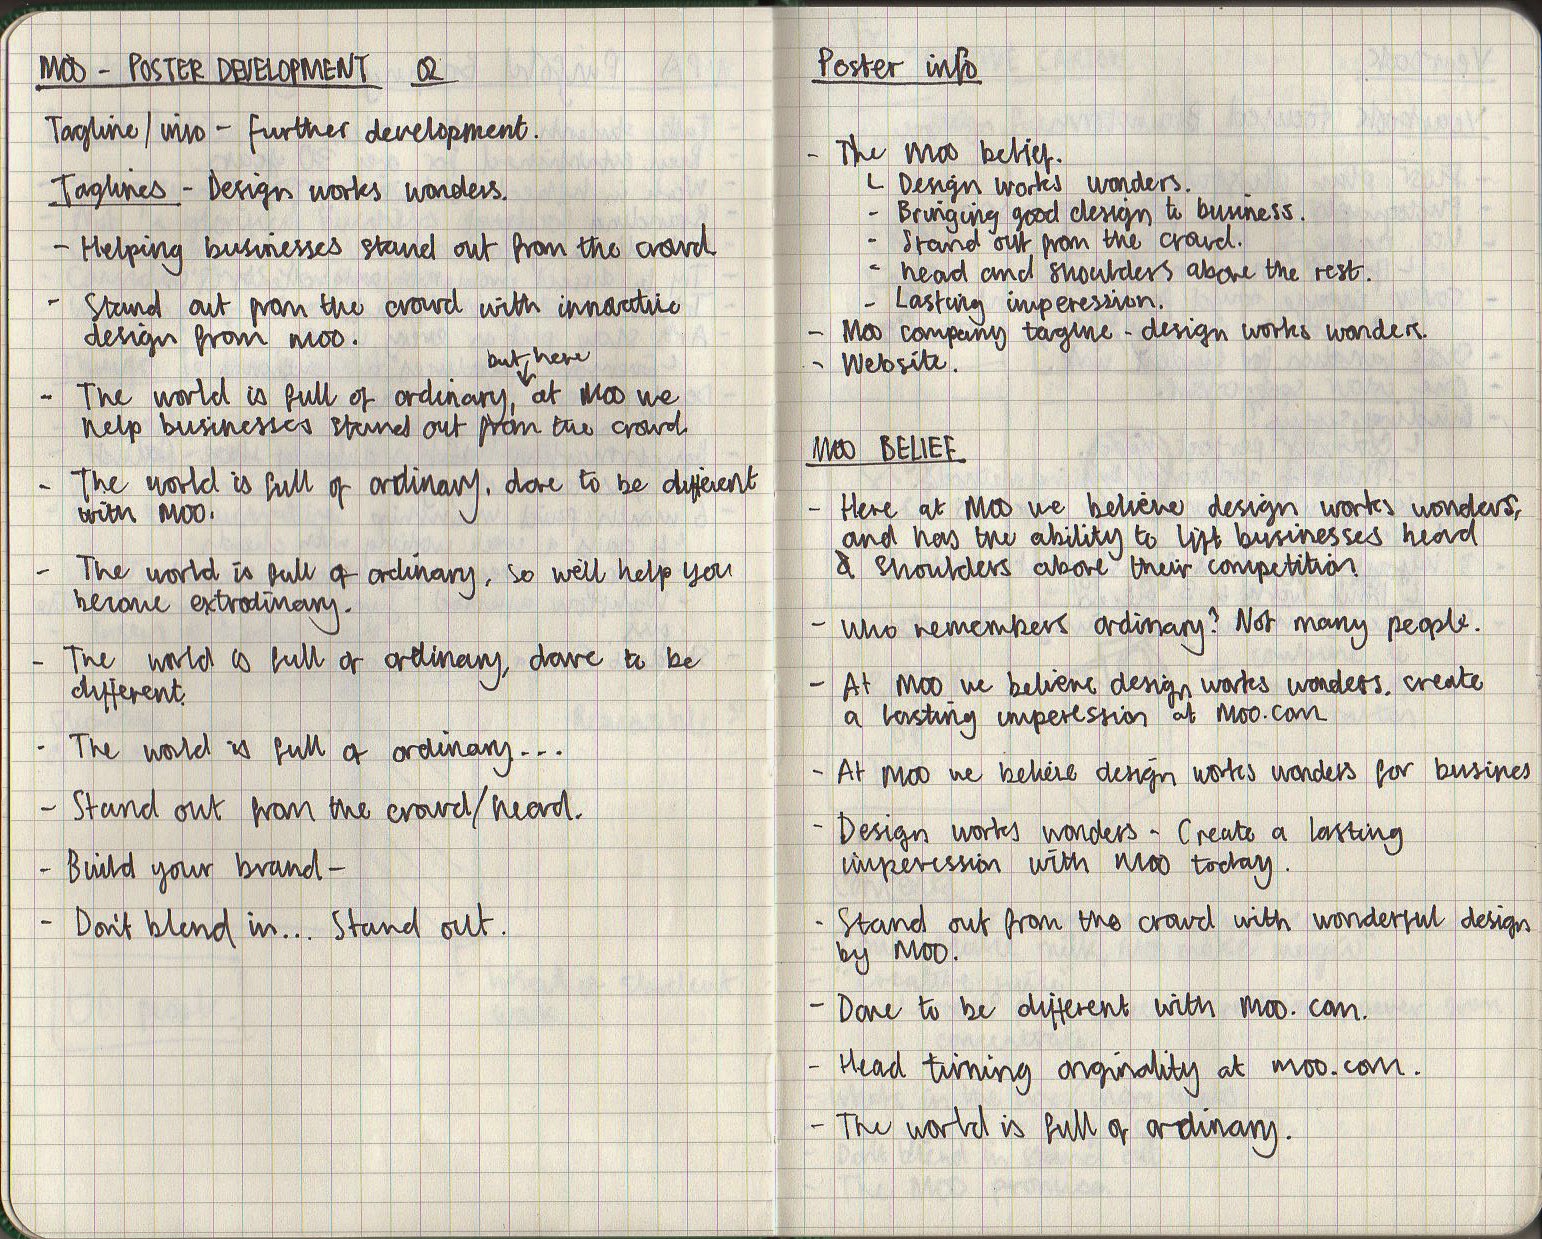 MOO - POSTER DEVELOPMENT 02
Tagline / info - further development.
Taglines - Design works wonders.
- Helping businesses stand out from the crowd
- Stand out from the crowd with innovative
design from moo.
but, here
- The world is full of ordinary, at Moo we
help businesses stand out from the crowd.
- The world is full of ordinary. dare to be different
with Moo.
- The world is full of ordinary, so we'll help you
become extrodinary.
- The world is full of ordinary, dare to be
different.
- The world is full of ordinary...
- Stand out from the crowd/heard.
- Build your brand -
- Don't blend in... Stand out.
Poster info
- The Moo belief.
L Design works wonders.
- Bringing good design to business.
- Stand out from the crowd.
- head and shoulders above the rest.
- Lasting imperession.
- Moo company tagine - design works wonders.
- Website.
MOO BELIEF
- Here at Moo we believe design works wonders,
and has the ability to lift businesses head
& shoulders above their competition.
- Who remembers ordinary? Not many people.
- At Moo we believe design works wonders. create
a lasting imperession at Moo.com
- At Moo we believe design works wonders for busines
- Design works wonders - Create a lasting
imperession with Moo today.
- Stand out from the crowd with wonderful design
by Moo.
- Dare to be different with Moo.com.
- Head turning originality at moo.com.
- The world is full of ordinary.